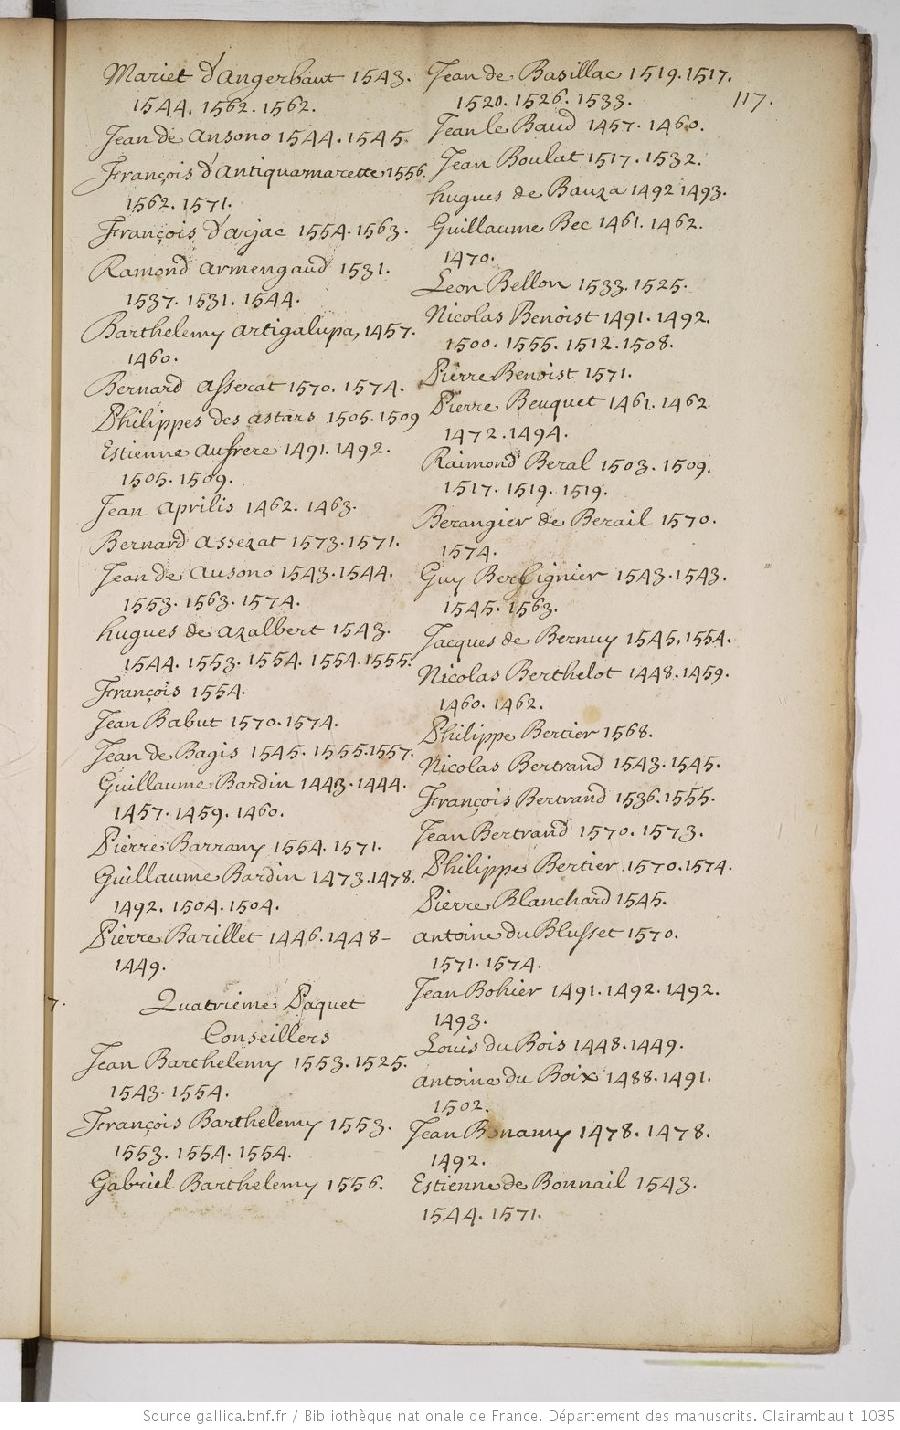 Mariet d'Angerbaut 1543.
1544. 1562. 1562.
Jean de Ansono 1544. 1545.
François d'Antiquamarette 1556.
1562. 1571.
François d'arjac 1554. 1563.
Ramond armengaud 1531.
1537. 1531. 1544.
Barthelemy artigalupa, 1457.
1460.
Bernard asserat 1570. 1574.
Philippes des astars 1505. 1509
Estienne aufrere 1491. 1492.
1505. 1509.
Jean aprilis 1462. 1463.
Bernard assezat 1573. 1571.
Jean de ausono 1543. 1544.
1553. 1563. 1574.
hugues de azalbert 1543.
1544. 1553. 1554. 1554. 1555.
François 1554
Jean Babut 1570. 1574.
Jean de Bagis 1545. 1555. 1557.
Guillaume Bardin 1443. 1444.
1457. 1459. 1460.
Pierre Barrany 1554. 1571.
Guillaume Bardin 1473. 1478.
1492. 1504. 1504.
Pierre Barillet 1446. 1448-
1449.
Quatrieme Paquet
Conseillers
Jean Barthelemy 1553. 1525.
1543. 1554.
François Barthelemy 1553.
1553. 1554. 1554.
Gabriel Barthelemy 1556.
Jean de Basillac 1519. 1517.
1520. 1526. 1533.
117.
Jean le Baud 1457. 1460.
Jean Boulat 1517. 1532.
hugues de Bauza 1492 1493.
Guillaume Bec 1461. 1462.
1470.
Leon Bellon 1533. 1525.
Nicolas Benoist 1491. 1492.
1500. 1555. 1512. 1508.
Pierre Benoist 1571.
Pierre Beuquet 1461. 1462
1472. 1494.
Raimond Beral 1503. 1509.
1517. 1519. 1519.
Berangier de Berail 1570.
1574.
Guy 1543. 1543.
1545. 1563.
Jacques de Bernuy 1545. 1554.
Nicolas Berthelot 1448. 1459.
1460. 1462.
Philippe Bertier 1568.
Nicolas Bertrand 1543. 1545.
François Bertrand 1536. 1555.
Jean Bertrand 1570. 1573.
Philippe Bertier 1570. 1574.
Pierre Blanchard 1545.
antoine du Blusset 1570.
1571. 1574
Jean Bohier 1491. 1492. 1492.
1493.
Louis du Bois 1448. 1449.
antoine du Boix 1488. 1491.
1502.
Jean Bonamy 1478. 1478.
1492.
Estienne de Bonnail 1543.
1544. 1571.
7.
Source gallica.bnf.fr / Bibliothèque nationale de France. Département des manuscrits. Clairambault 1035